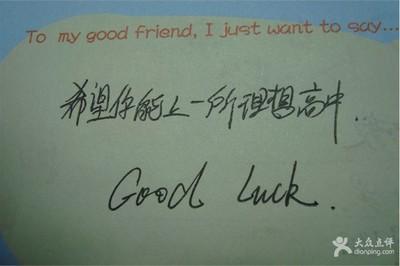 To my good friend, I just want to say...
希望你能上一所理想高中.
Good Luck.
大众点评
dianping.com